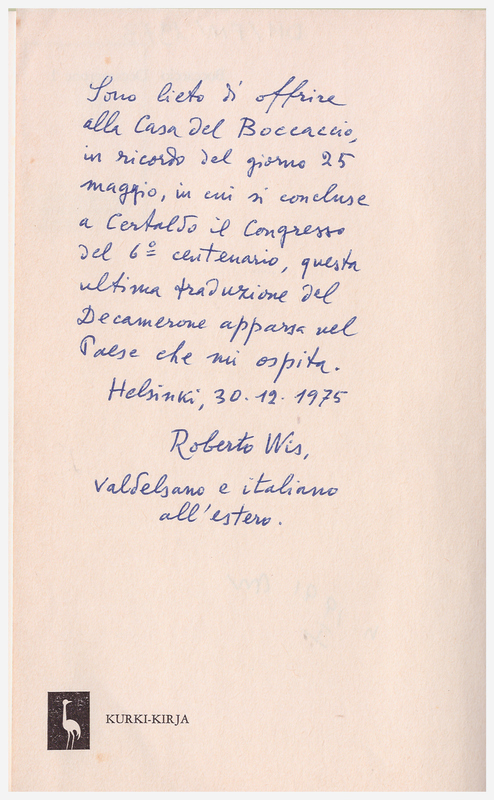 Sono lieto di offrire
alla Casa del Boccaccio,
in ricordo del giorno 25
maggio, in cui si concluse
a Certaldo il Congresso
del 6º centenario, questa
ultima traduzione del
Decamerone apparsa nel
Paese che mi ospita.
Helsinki, 30.12.1975
Roberto Wis,
valdelsano e italiano
all'estero.
KURKI-KIRJA